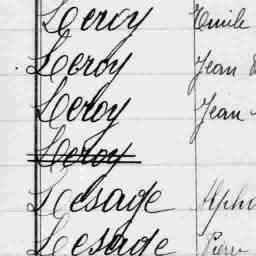 Leroy Emile
Leroy Jean
Leroy Jean
Leroy
Lesage Alpho
Lesage Pierr